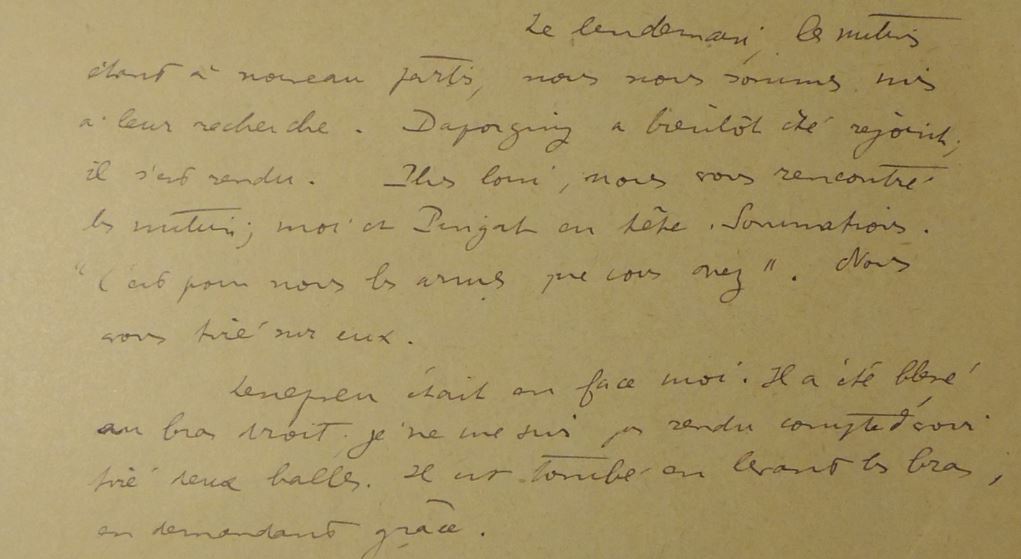 Le lendemain, les mutins
étant à nouveau partis, nous nous sommes mis
à leur recherche. Daporging a bientôt été rejoint,
il s'est rendu. Plus loin, nous avons rencontré
les mutins; moi et Pingat en tête. Sommations.
"C'est pour nous les armes que vous avez". Nous
avons tiré sur eux.
était en face moi. Il a été blessé
au bras droit. je ne me suis pas rendu compte d'avoir
tiré deux balles. Il est tombé en levant les bras,
en demandant grâce.